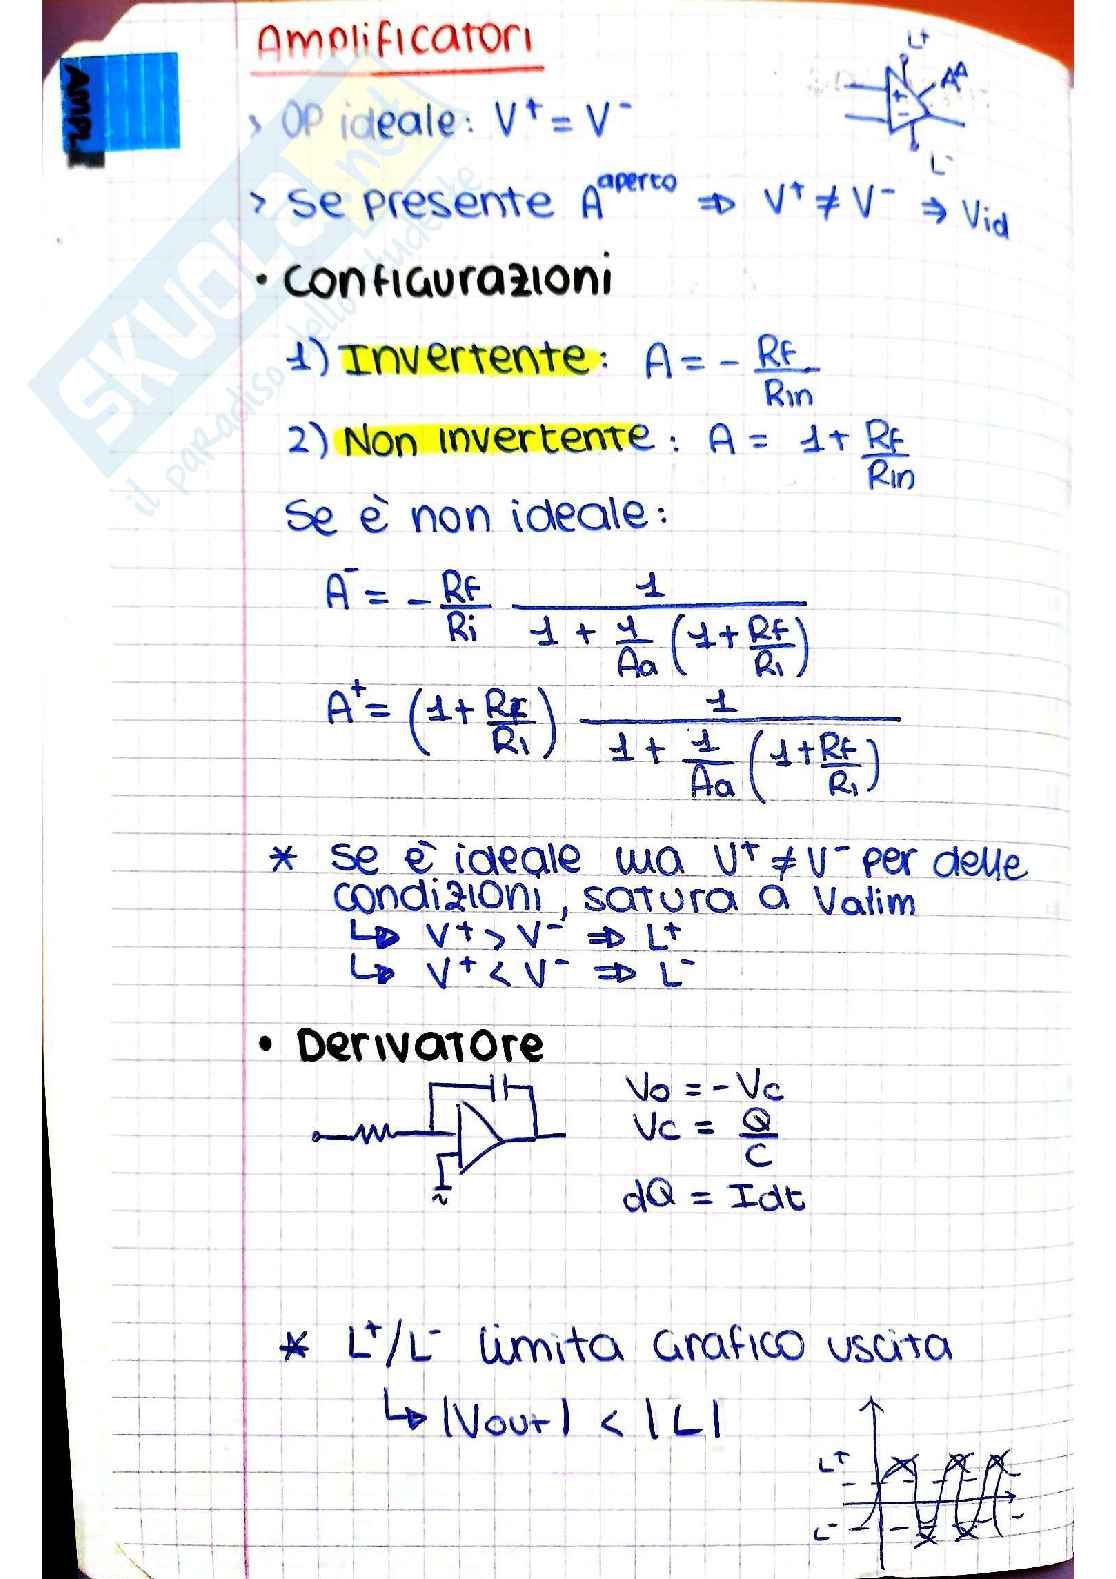 Amplificatori
AMPL.
L+
AA
+
-
L-
> OP ideale: V+ = V-
> se presente A^aperto ⇒ V+ ≠ V- ⇒ Vid
• Configurazioni
1) Invertente: A = - RF/Rin
2) Non invertente: A = 1 + RF/Rin
Se è non ideale:
A- = - RF/Ri 1/(1 + 1/Aa (1 + RF/Ri))
A+ = (1 + RF/Ri) 1/(1 + 1/Aa (1 + RF/Ri))
* se è ideale ma V+ ≠ V- per delle
condizioni, satura a Valim
↳ V+ > V- ⇒ L+
↳ V+ < V- ⇒ L-
• Derivatore
Vo = - Vc
Vc = Q/C
dQ = Idt
* L+/L- limita grafico uscita
↳ |Vout| < |L|
L+
L-
SKUOLA.net
il paradiso dello studente